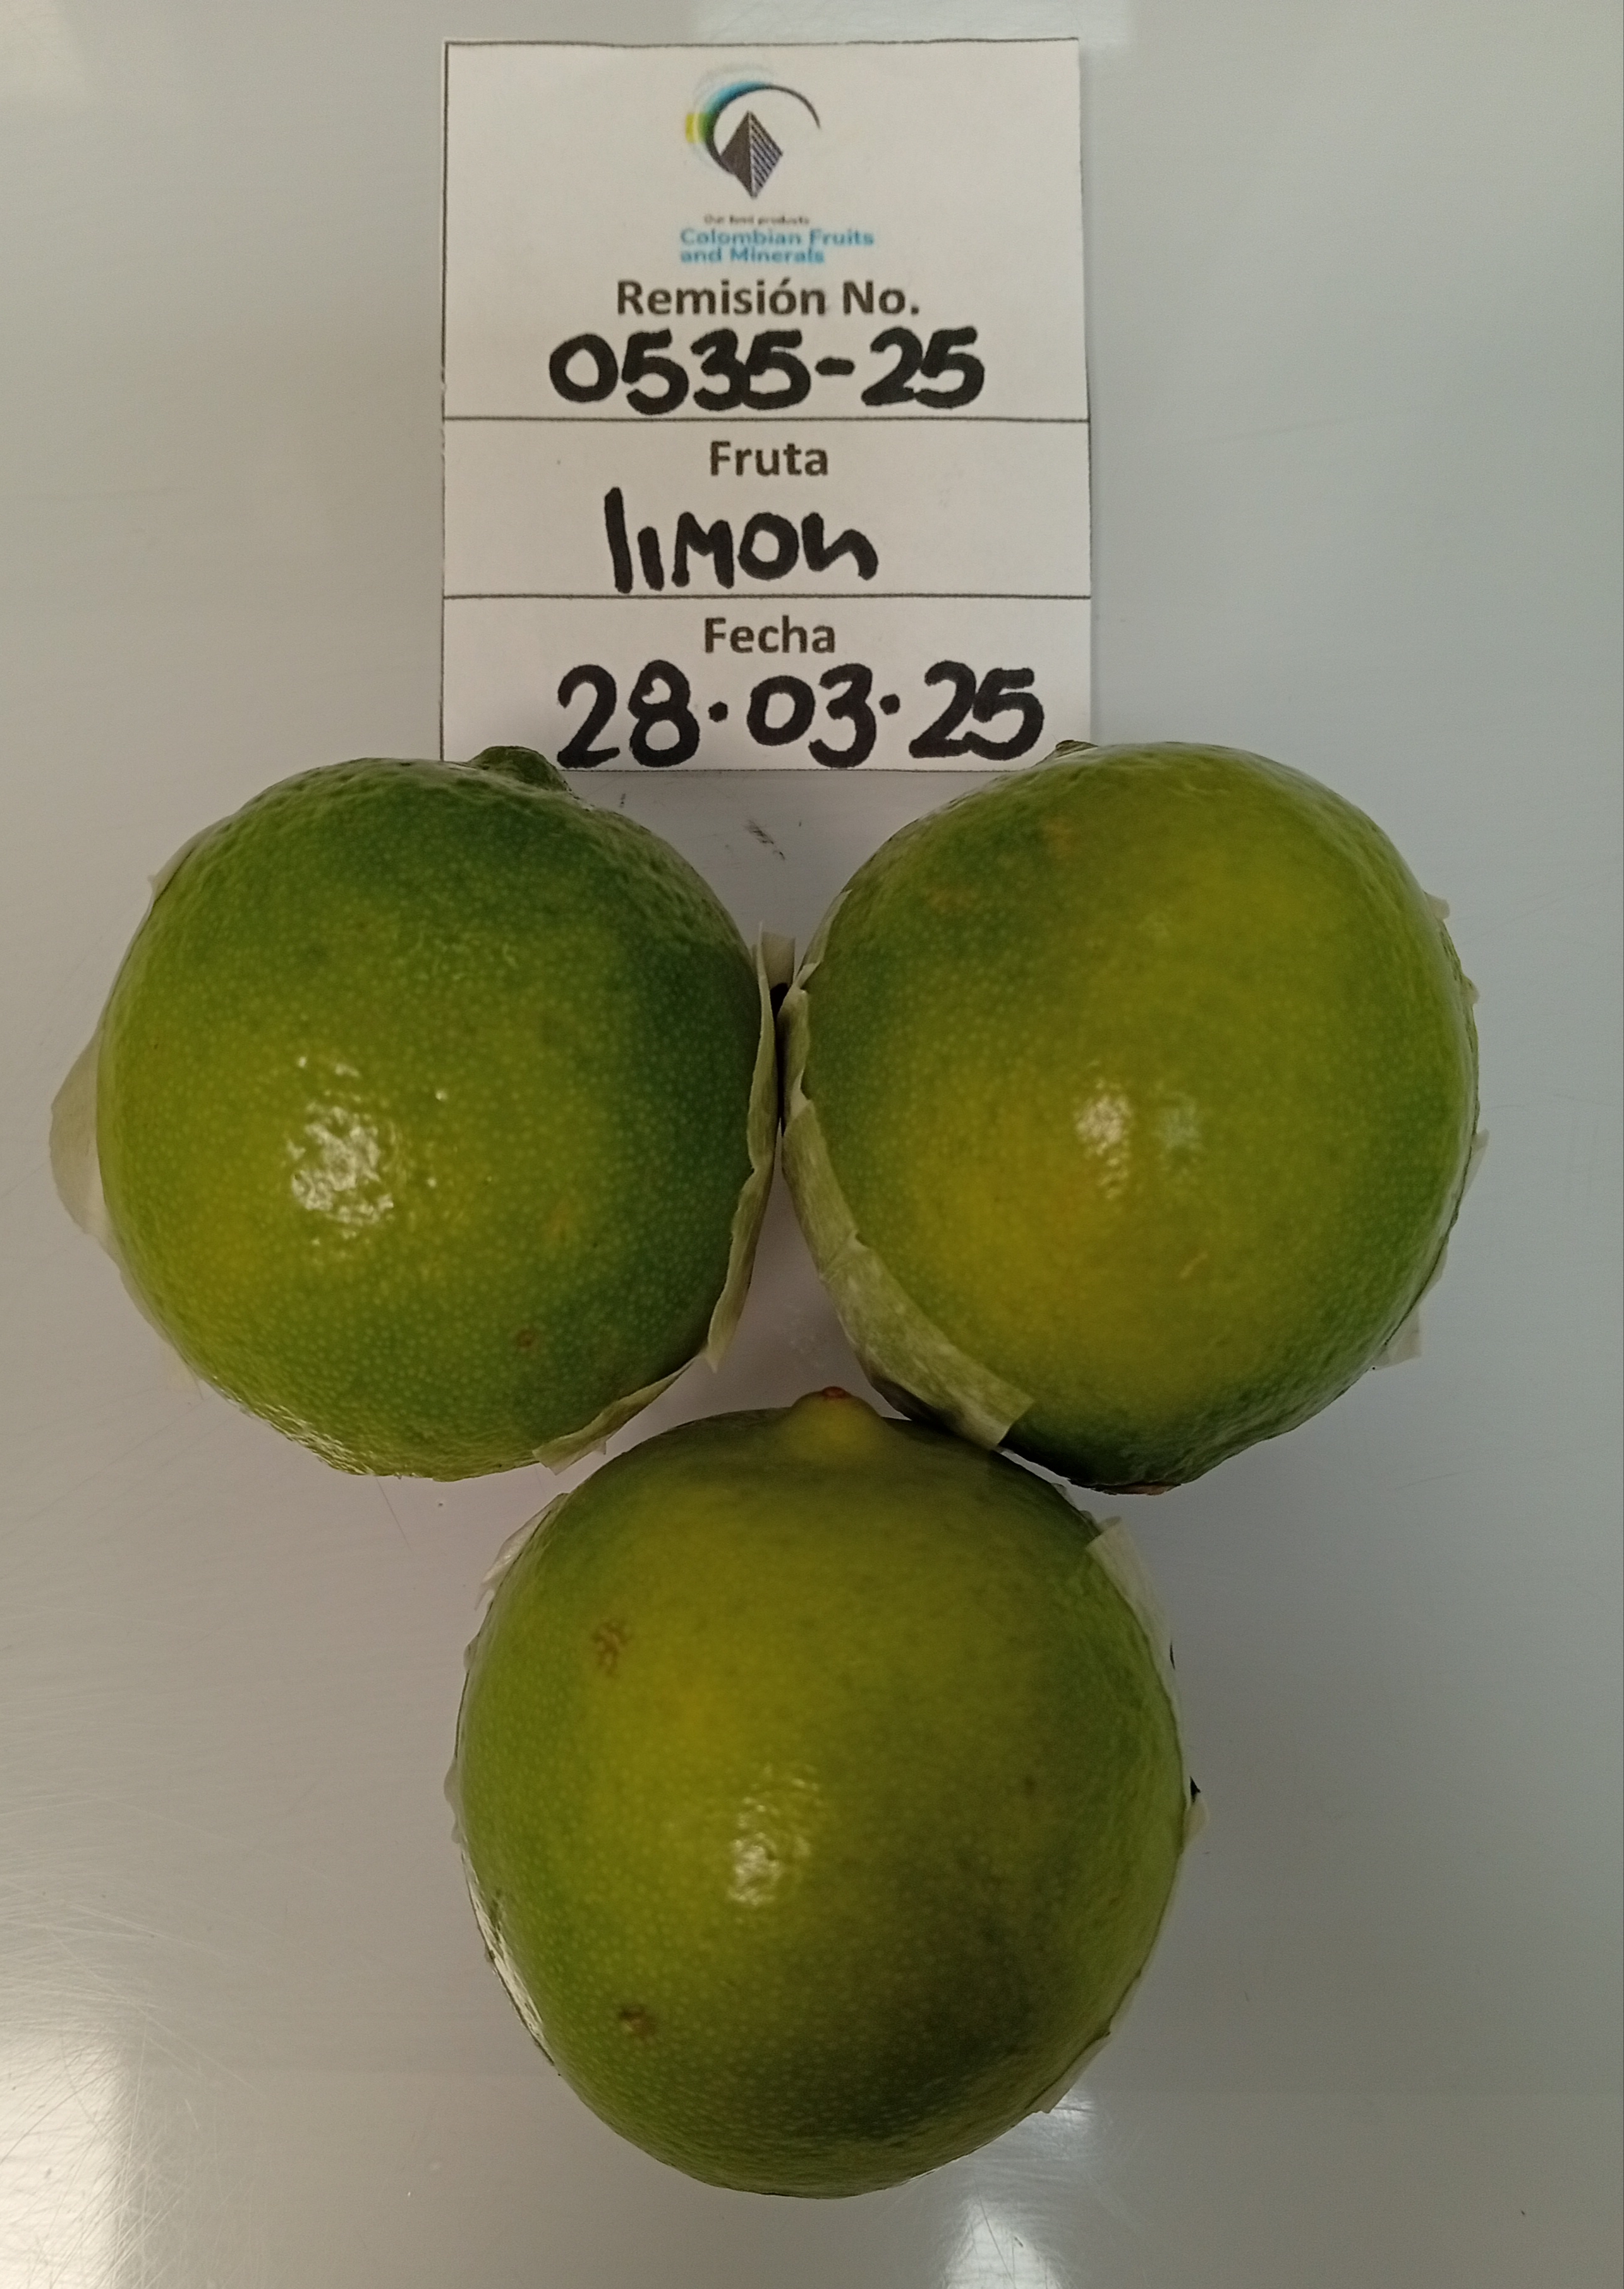 Our best products
Colombian Fruits
and Minerals
Remisión No.
0535-25
Fruta
limon
Fecha
28.03.25